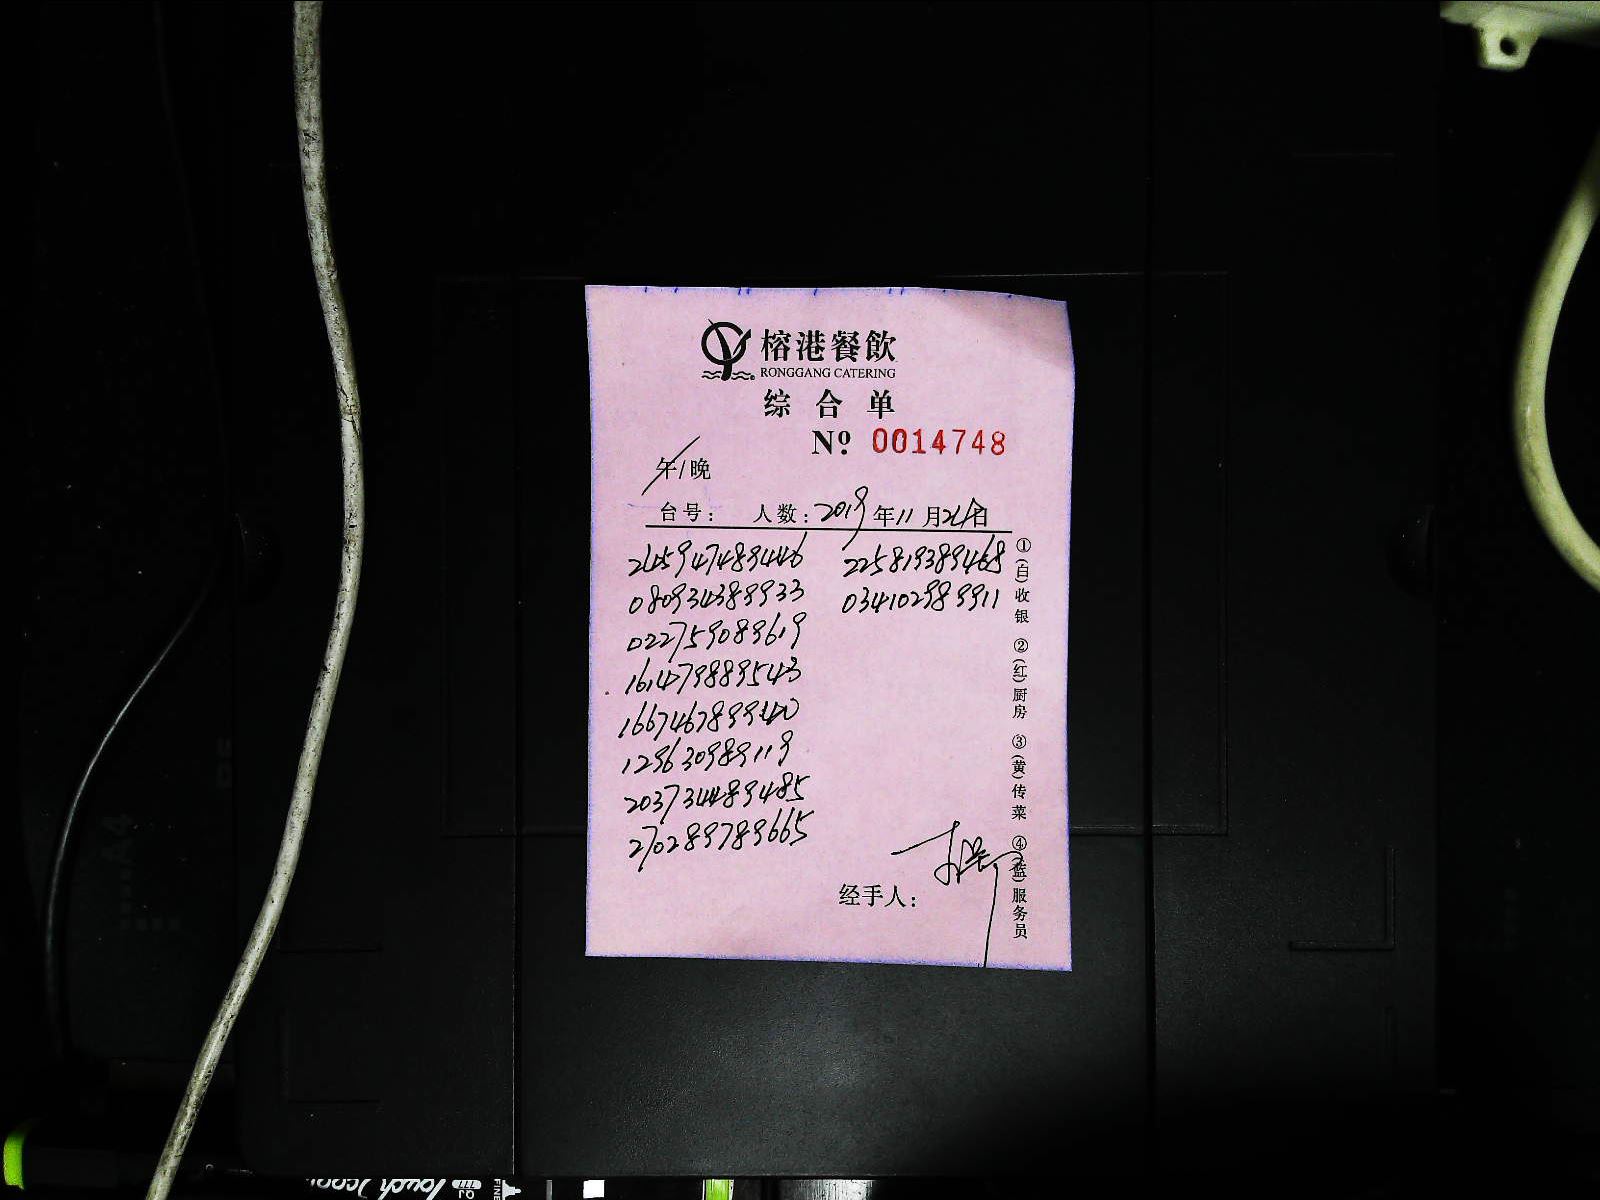 榕港餐飲
RONGGANG CATERING
综合单
Nº 0014748
午/晚
台号： 人数：2019年11月26日
245947489446 225819389468
080934389933 034102989911
022759089619
161479889543
166746789940
129630989119
203734489485
270289789665
经手人：
①(白)收银 ②(红)厨房 ③(黄)传菜 ④(蓝)服务员
Touch